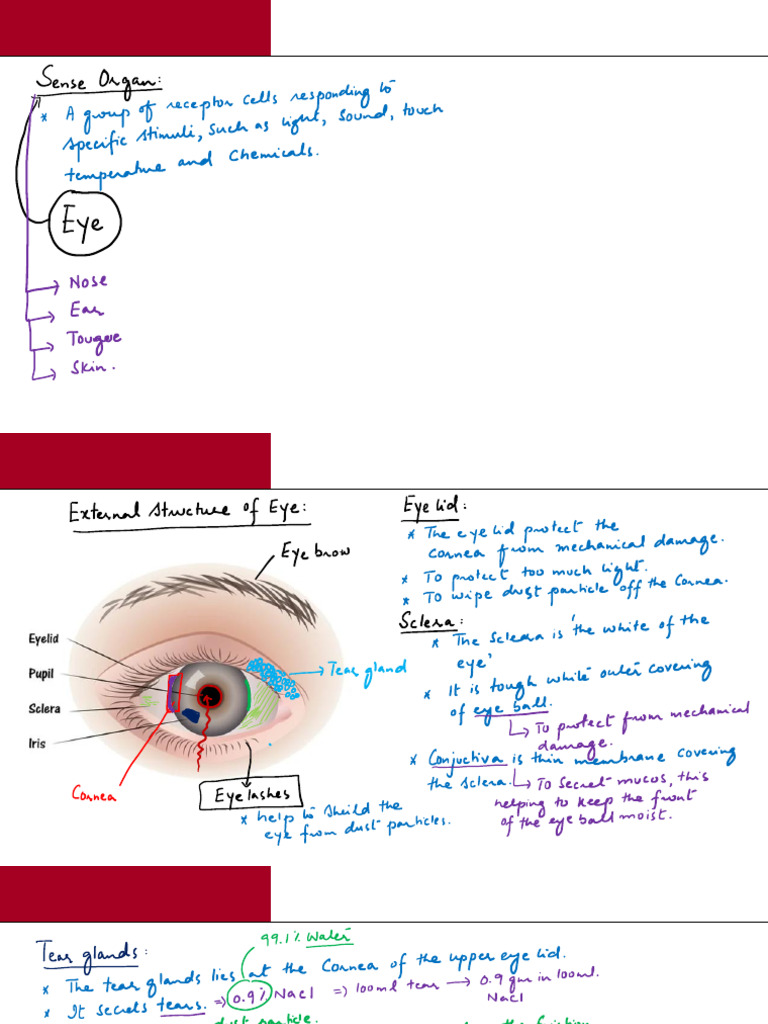 Sense Organ:
* A group of receptor cells responding to
specific stimuli, such as light, sound, touch
temperature and chemicals.
Eye
Nose
Ear
Tougue
Skin.
External structure of Eye:
Eye brow
Eyelid
Pupil
Sclera
Iris
Tear gland
Cornea
Eyelashes
* help to sheild the
eye from dust particles.
Eye lid:
* The eye lid protect the
cornea from mechanical damage.
* To protect too much light.
* To wipe dust particle off the cornea.
Sclera:
* The sclera is 'the white of the
eye'
* It is tough white outer covering
of eye ball.
To protect from mechanical
damage.
* Conjuctiva is thin membrane covering
the sclera.
To secret mucos, this
helping to keep the front
of the eye ball moist.
99.1% water
Tear glands:
* The tear glands lies at the Cornea of the upper eye lid.
* It secrets tears. => 0.9% NaCl => 100ml tear → 0.9 gm in 100ml.
NaCl
dust particle.
the friction